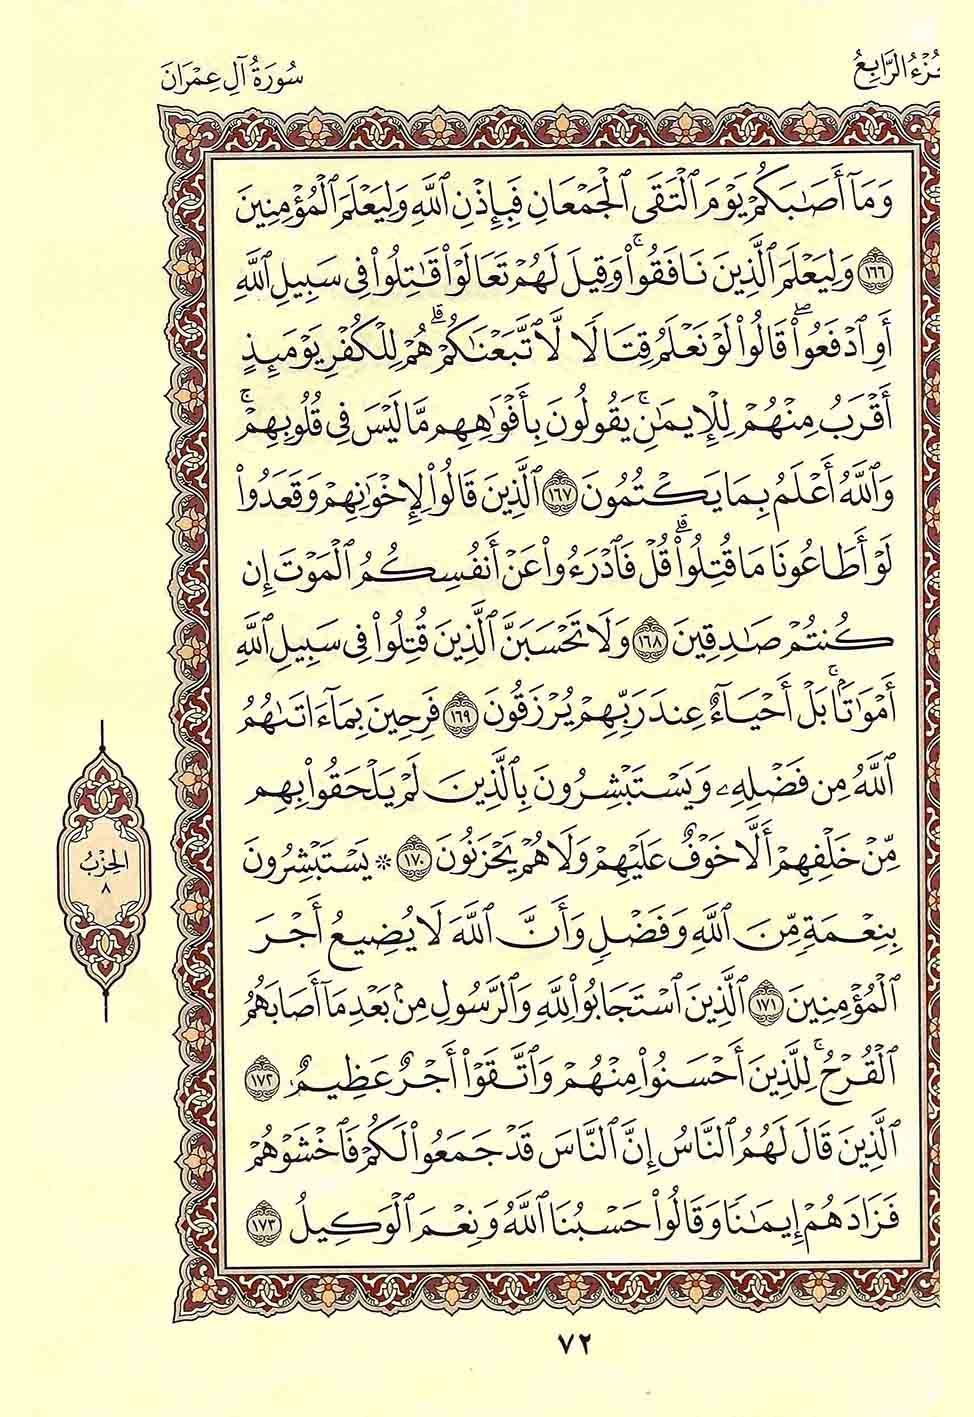 جُزْءُ الرَّابِعُ
سُورَةُ آلِ عِمْرَانَ
وَمَآ أَصَٰبَكُمْ يَوْمَ ٱلْتَقَى ٱلْجَمْعَانِ فَبِإِذْنِ ٱللَّهِ وَلِيَعْلَمَ ٱلْمُؤْمِنِينَ
١٦٦ وَلِيَعْلَمَ ٱلَّذِينَ نَافَقُوا۟ۚ وَقِيلَ لَهُمْ تَعَالَوْا۟ قَٰتِلُوا۟ فِى سَبِيلِ ٱللَّهِ
أَوِ ٱدْفَعُوا۟ۖ قَالُوا۟ لَوْ نَعْلَمُ قِتَالًا لَّٱتَّبَعْنَٰكُمْۗ هُمْ لِلْكُفْرِ يَوْمَئِذٍ
أَقْرَبُ مِنْهُمْ لِلْإِيمَٰنِۚ يَقُولُونَ بِأَفْوَٰهِهِم مَّا لَيْسَ فِى قُلُوبِهِمْۚ
وَٱللَّهُ أَعْلَمُ بِمَا يَكْتُمُونَ ١٦٧ ٱلَّذِينَ قَالُوا۟ لِإِخْوَٰنِهِمْ وَقَعَدُوا۟
لَوْ أَطَاعُونَا مَا قُتِلُوا۟ۗ قُلْ فَٱدْرَءُوا۟ عَنْ أَنفُسِكُمُ ٱلْمَوْتَ إِن
كُنتُمْ صَٰدِقِينَ ١٦٨ وَلَا تَحْسَبَنَّ ٱلَّذِينَ قُتِلُوا۟ فِى سَبِيلِ ٱللَّهِ
أَمْوَٰتًۢاۚ بَلْ أَحْيَآءٌ عِندَ رَبِّهِمْ يُرْزَقُونَ ١٦٩ فَرِحِينَ بِمَآ ءَاتَىٰهُمُ
ٱللَّهُ مِن فَضْلِهِۦ وَيَسْتَبْشِرُونَ بِٱلَّذِينَ لَمْ يَلْحَقُوا۟ بِهِم
مِّنْ خَلْفِهِمْ أَلَّا خَوْفٌ عَلَيْهِمْ وَلَا هُمْ يَحْزَنُونَ ١٧٠ * يَسْتَبْشِرُونَ
بِنِعْمَةٍ مِّنَ ٱللَّهِ وَفَضْلٍ وَأَنَّ ٱللَّهَ لَا يُضِيعُ أَجْرَ
ٱلْمُؤْمِنِينَ ١٧١ ٱلَّذِينَ ٱسْتَجَابُوا۟ لِلَّهِ وَٱلرَّسُولِ مِنۢ بَعْدِ مَآ أَصَابَهُمُ
ٱلْقَرْحُۚ لِلَّذِينَ أَحْسَنُوا۟ مِنْهُمْ وَٱتَّقَوْا۟ أَجْرٌ عَظِيمٌ ١٧٢
ٱلَّذِينَ قَالَ لَهُمُ ٱلنَّاسُ إِنَّ ٱلنَّاسَ قَدْ جَمَعُوا۟ لَكُمْ فَٱخْشَوْهُمْ
فَزَادَهُمْ إِيمَٰنًا وَقَالُوا۟ حَسْبُنَا ٱللَّهُ وَنِعْمَ ٱلْوَكِيلُ ١٧٣
الحِزْبُ
٨
٧٢